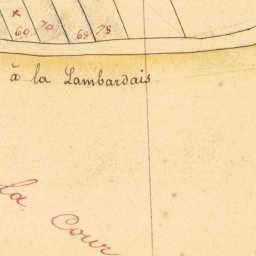 x
60 70 69 78
à la Lambardais
la Cour